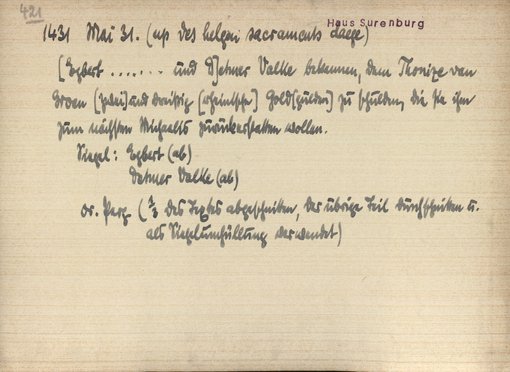 421
Haus Surenburg
1431 Mai 31. (up des helgen sacraments daege)
[Egbert ....... und D]etmer Valke bekennen, dem Thonize van
[zwei] und dreißig [rheinische] Gold[gulden] zu schulden, die sie ihm
zum nächsten Michaelis zurückerstatten wollen.
Siegel: Egbert (ab)
Detmer Valke (ab)
Or. Perg (1/3 des Textes abgeschnitten, der übrige Teil durchschnitten u.
als Siegelumhüllung verwendet)